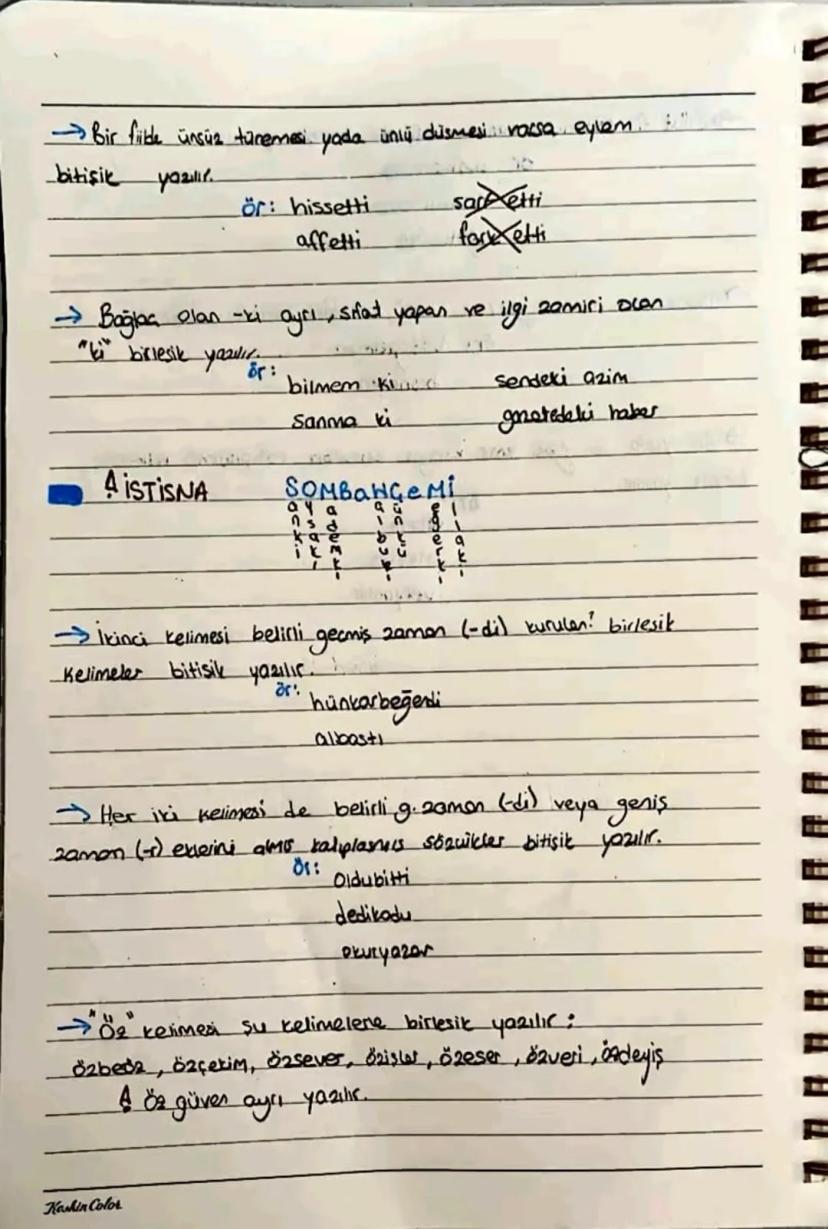 → Bir fiilde ünsüz türemesi yada ünlü düşmesi varsa eylem
bitişik yazılır.
ör: hissetti sarfetti
affetti farketti
→ Bağlaç olan -ki ayrı, sıfat yapan ve ilgi zamiri olan
"ki" birleşik yazılır.
ör: bilmem ki sendeki azim
sanma ki gazetedeki haber
İSTİSNA SOMBaHÇeMİ
sanki oysaki mademki halbuki çünkü meğerki illaki
→ İkinci kelimesi belirli geçmiş zaman (-di) kurulan! birleşik
kelimeler bitişik yazılır.
ör: hünkarbeğendi
albastı
→ Her iki kelimesi de belirli g. zaman (-di) veya geniş
zaman (-r) eklerini almış kalıplaşmış sözcükler bitişik yazılır.
ör: Oldubitti
dedikodu
okuryazar
→ "Öz" kelimesi şu kelimelerle birleşik yazılır:
özçekim, özsever, özişler, özeser, özveri, özdeyiş
Öz güven ayrı yazılır.
Keskin Color